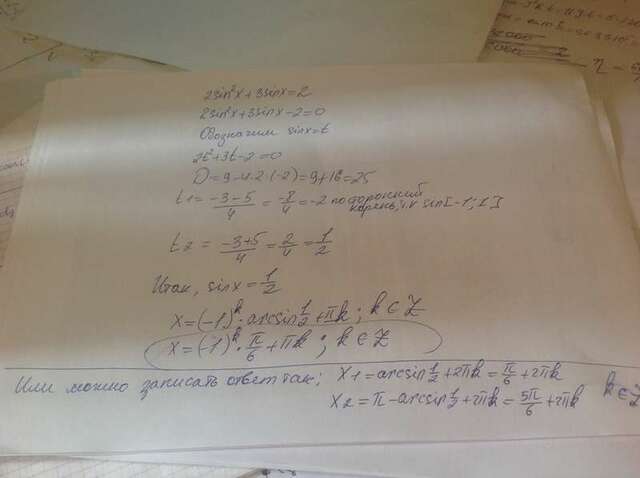 2sin²x+3sinx=2
2sin²x+3sinx-2=0
Обозначим sinx=t
2t²+3t-2=0
D=9-4·2·(-2)=9+16=25
t1=(-3-5)/4=-8/4=-2 посторонний корень, т.к sin[-1;1]
t2=(-3+5)/4=2/4=1/2
Итак, sinx=1/2
x=(-1)^k·arcsin1/2+πk; k∈Z
x=(-1)^k·π/6+πk; k∈Z
Или можно записать ответ так: x1=arcsin1/2+2πk=π/6+2πk
x2=π-arcsin1/2+2πk=5π/6+2πk k∈Z